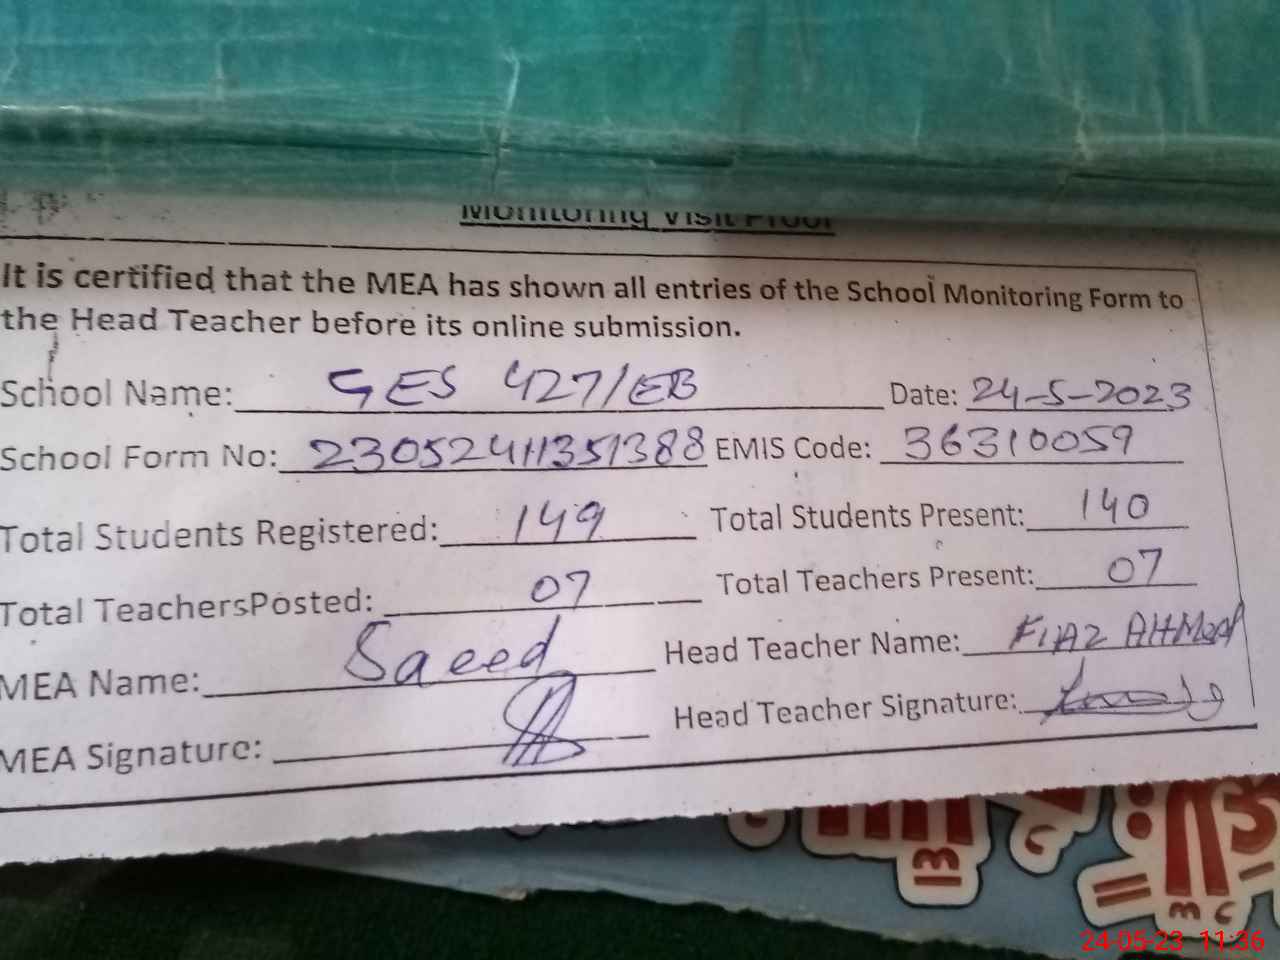 Monitoring Visit Proof
It is certified that the MEA has shown all entries of the School Monitoring Form to
the Head Teacher before its online submission.
School Name: GES 427/EB Date: 24-5-2023
School Form No: 23052411351388 EMIS Code: 36310059
Total Students Registered: 149 Total Students Present: 140
Total TeachersPosted: 07 Total Teachers Present: 07
MEA Name: Saeed Head Teacher Name: FIAZ AHMed
MEA Signature: Head Teacher Signature:
24-05-23 11:36